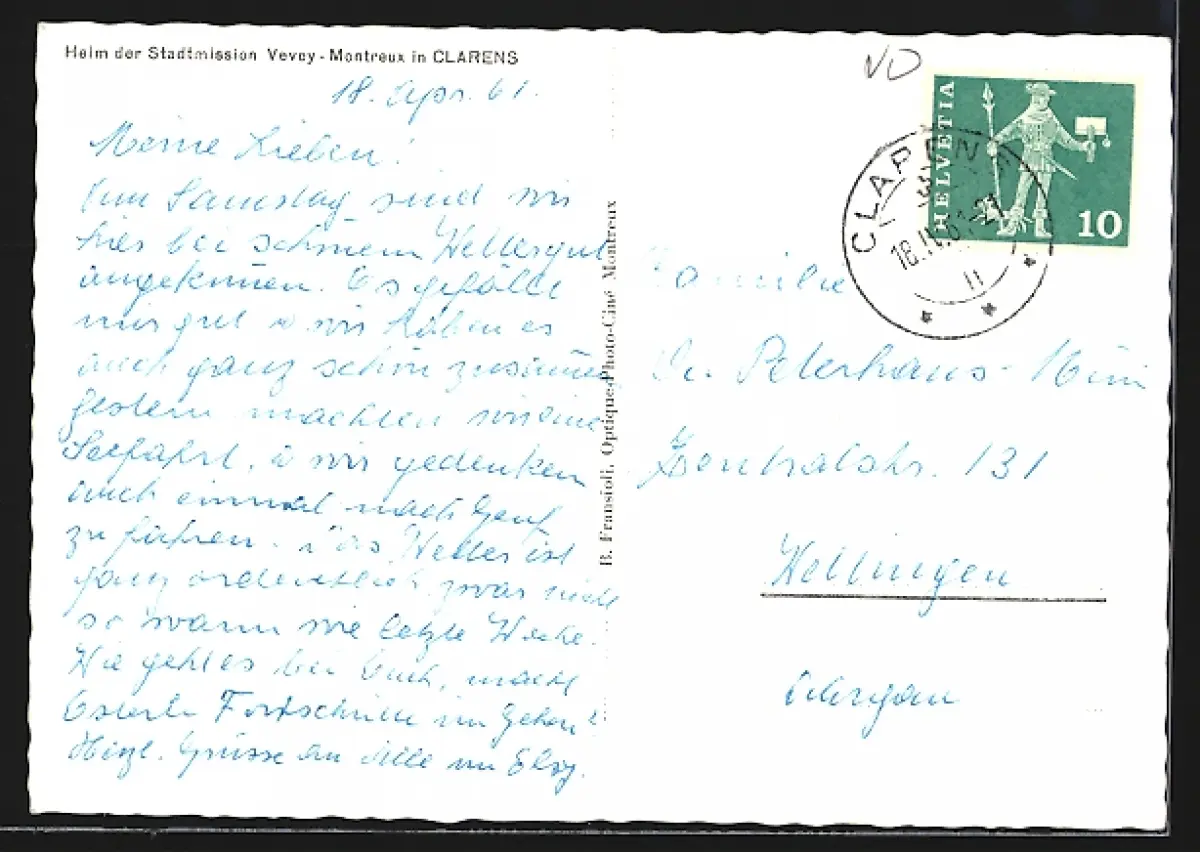 Heim der Stadtmission Vevey - Montreux in CLARENS
18. Apr. 61.
Meine Lieben!
Am Samstag sind wir
hier bei schönem Wetter gut
angekommen. Es gefällt
mir gut u wir haben es
auch ganz schön zusammen
gestern machten wir eine
Seefahrt. u wir gedenken
auch einmal nach Genf
zu fahren. Das Wetter ist
ganz ordentlich, zwar nicht
so warm wie letzte Woche.
Wie geht es bei Euch, macht
Fortschritte im Gehen?
Herzl. Grüsse an Alle
B. Fransioli, Optique-Photo-Ciné Montreux
VD
HELVETIA
10
CLARENS
18.IV.61-21
Familie
Peterhans
Zentralstr. 131
Wettingen
Aargau